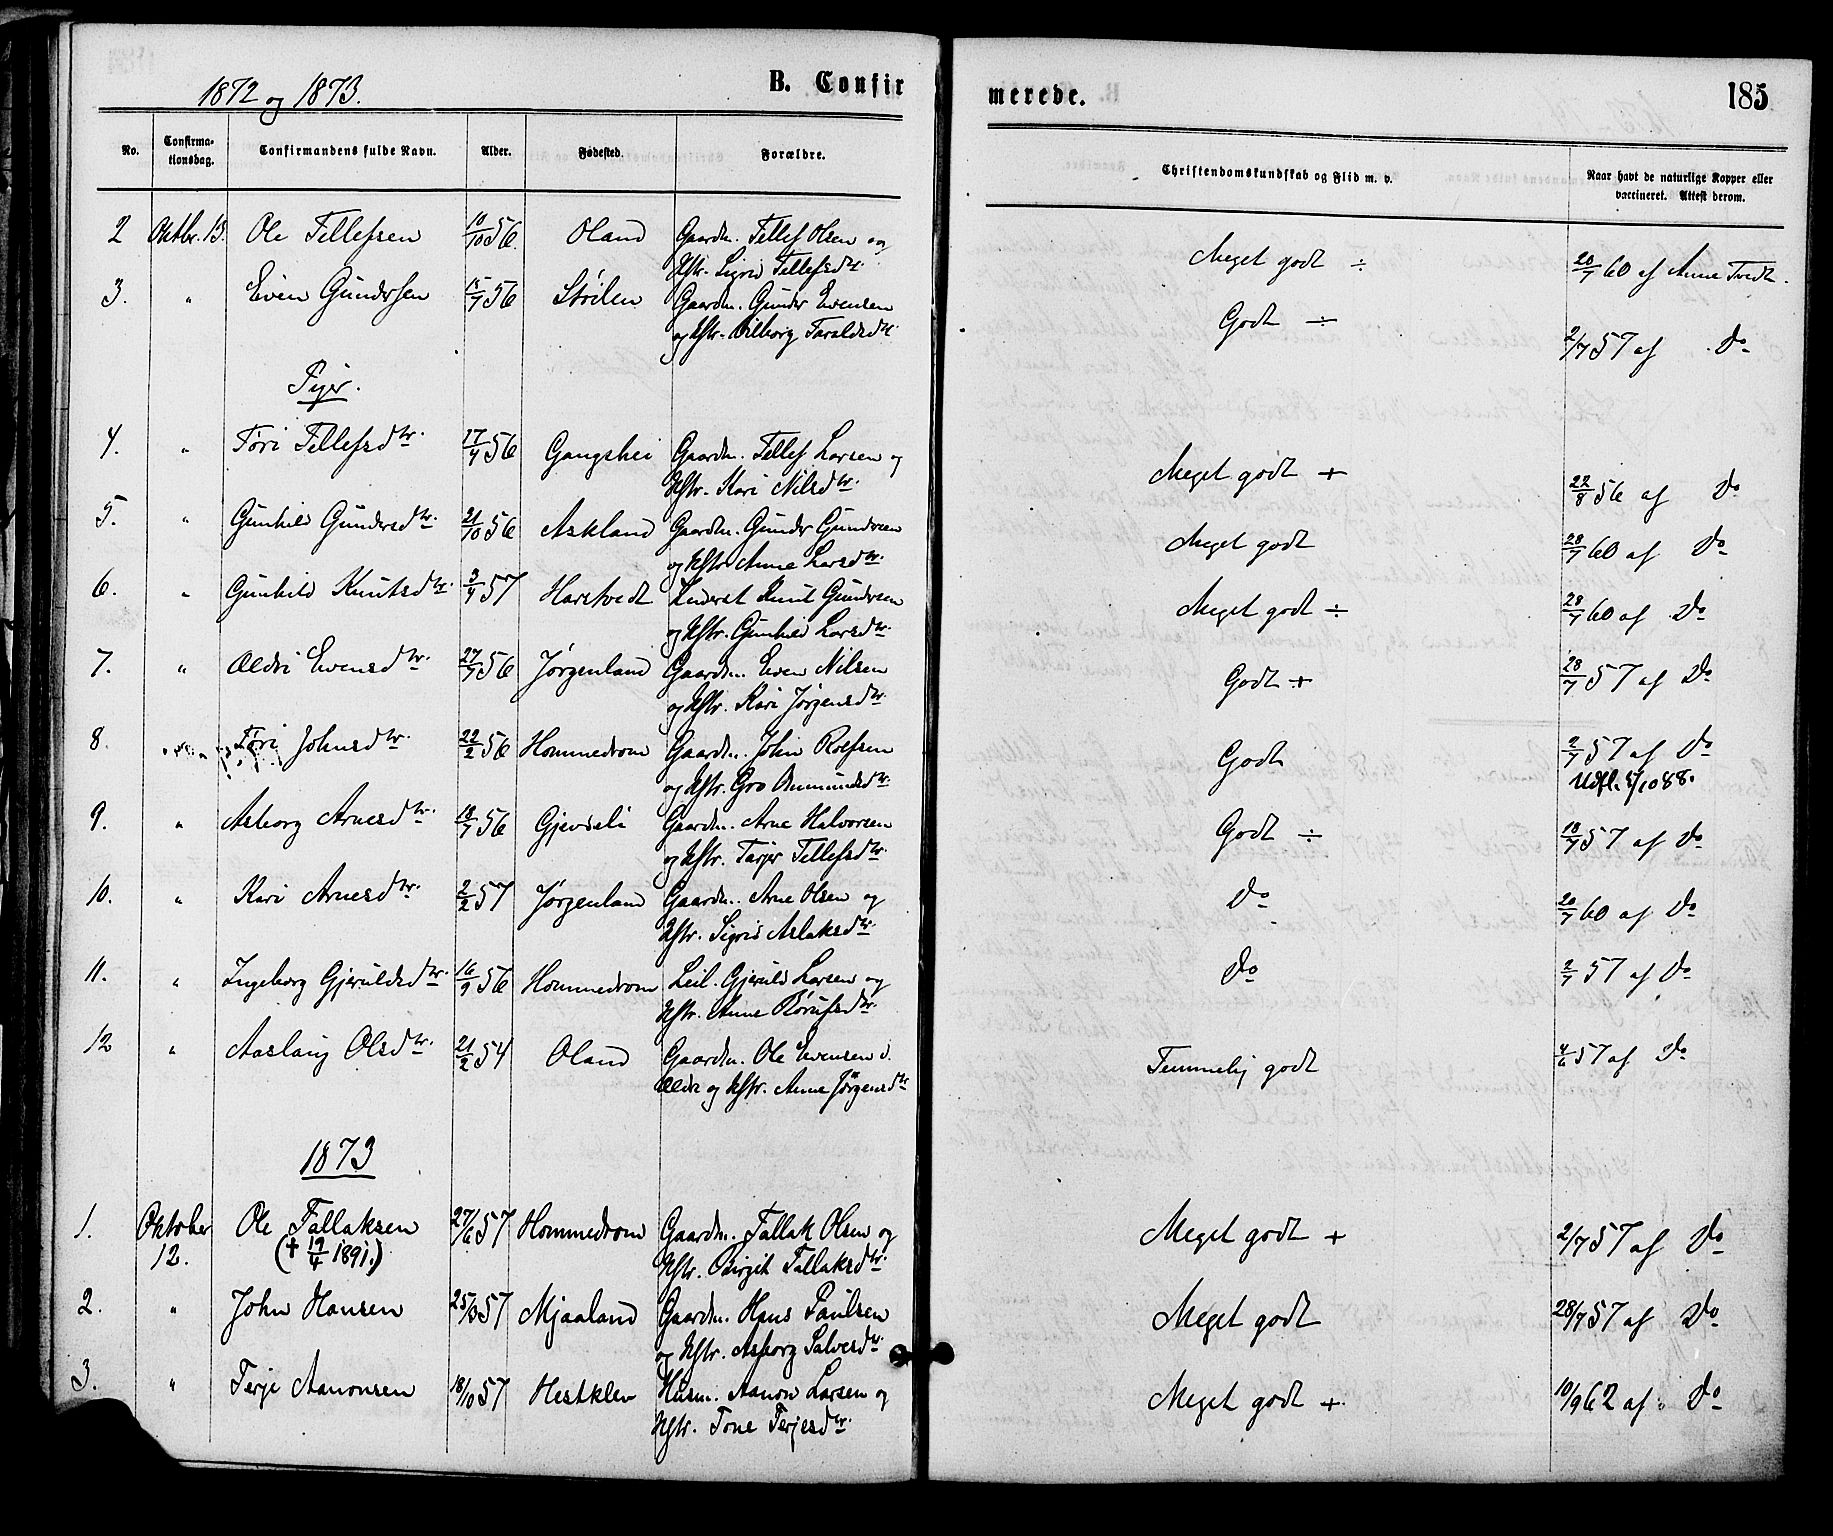 1872 og 1873.
B. Confirmerede.
185
No.
Confirmationsdag.
Confirmandens fulde Navn.
Alder.
Fødested.
Forældre.
Christendomskundskab og Flid m. v.
Naar havt de naturlige Kopper eller vaccineret. Attest derom.
2 Oktbr. 13. Ole Tellefsen 10/10 56 Oland Gaardm. Tellef Olsen og Meget godt ÷ 20/7 60 af Anne Tvedt.
Hstr. Sigrid Tellefsdtr.
3. " Even Gundersen 15/7 56 Stoilen Gaardm. Gunder Evensen Godt ÷ 2/7 57 af Do
og Hstr. Vilborg Taraldsdtr.
Piger.
4. " Tori Tellefsdtr. 17/4 56 Gangshei Gaardm. Tellef Larsen og Meget godt + 22/8 56 af Do
Hstr. Kari Nilsdtr.
5. " Gunhild Gundersdtr. 21/10 56 Askland Gaardm. Gunder Gundersen Meget godt 28/7 60 af Do
og Hstr. Anne Larsdtr.
6. " Gunhild Knutsdtr. 3/4 57 Harstvedt Inderst Knut Gundersen Meget godt ÷ 28/7 60 af Do
og Hstr. Gunhild Larsdtr.
7. " Oldri Evensdtr. 27/7 56 Jørgenland Gaardm. Even Nilsen Godt + 28/7 57 af Do
og Hstr. Kari Jørgensdtr.
8. Tori Johnsdtr. 22/2 56 Hommedrom Gaardm. John Rolfsen Godt 2/7 57 af Do
og Hstr. Gro Anmundsdtr. Udfl. 5/10 88.
9. " Asborg Arnesdtr. 18/7 56 Gjevdeli Gaardm. Arne Halvorsen Godt ÷ 18/7 57 af Do
og Hstr. Tarjer Tellefsdtr.
10. " Kari Arnesdtr. 2/2 57 Jørgenland Gaardm. Arne Olsen og Do 20/7 60 af Do
Hstr. Sigrid Aslaksdtr.
11. " Ingeborg Gjeruldsdtr. 16/9 56 Hommedrom Leil. Gjeruld Larsen og Do 2/7 57 af Do
Hstr. Anne Rorufsdtr.
12 " Aaslaug Olsdtr. 21/2 54 Oland Gaardm. Ole Evensen d. Temmelig godt 4/6 57 af Do
Ældre og Hstr. Anne Jørgensdtr
1873
1. Oktober Ole Tallaksen 27/6 57 Hommedrom Gaardm. Tallak Olsen og Meget godt + 2/7 57 af Do
12. († 19/4 1891.) Hstr. Birgit Tallaksdtr.
2. " John Hansen 57 Mjaaland Gaardm. Hans Paulsen Meget godt 28/7 57 af Do
og Hstr. Asborg Salvesdtr.
3. " Terje Aanonsen 18/10 57 Hestklev Husm. Aanon Larsen og Meget godt + 10/9 62 af Do
Hstr. Tone Terjesdtr.